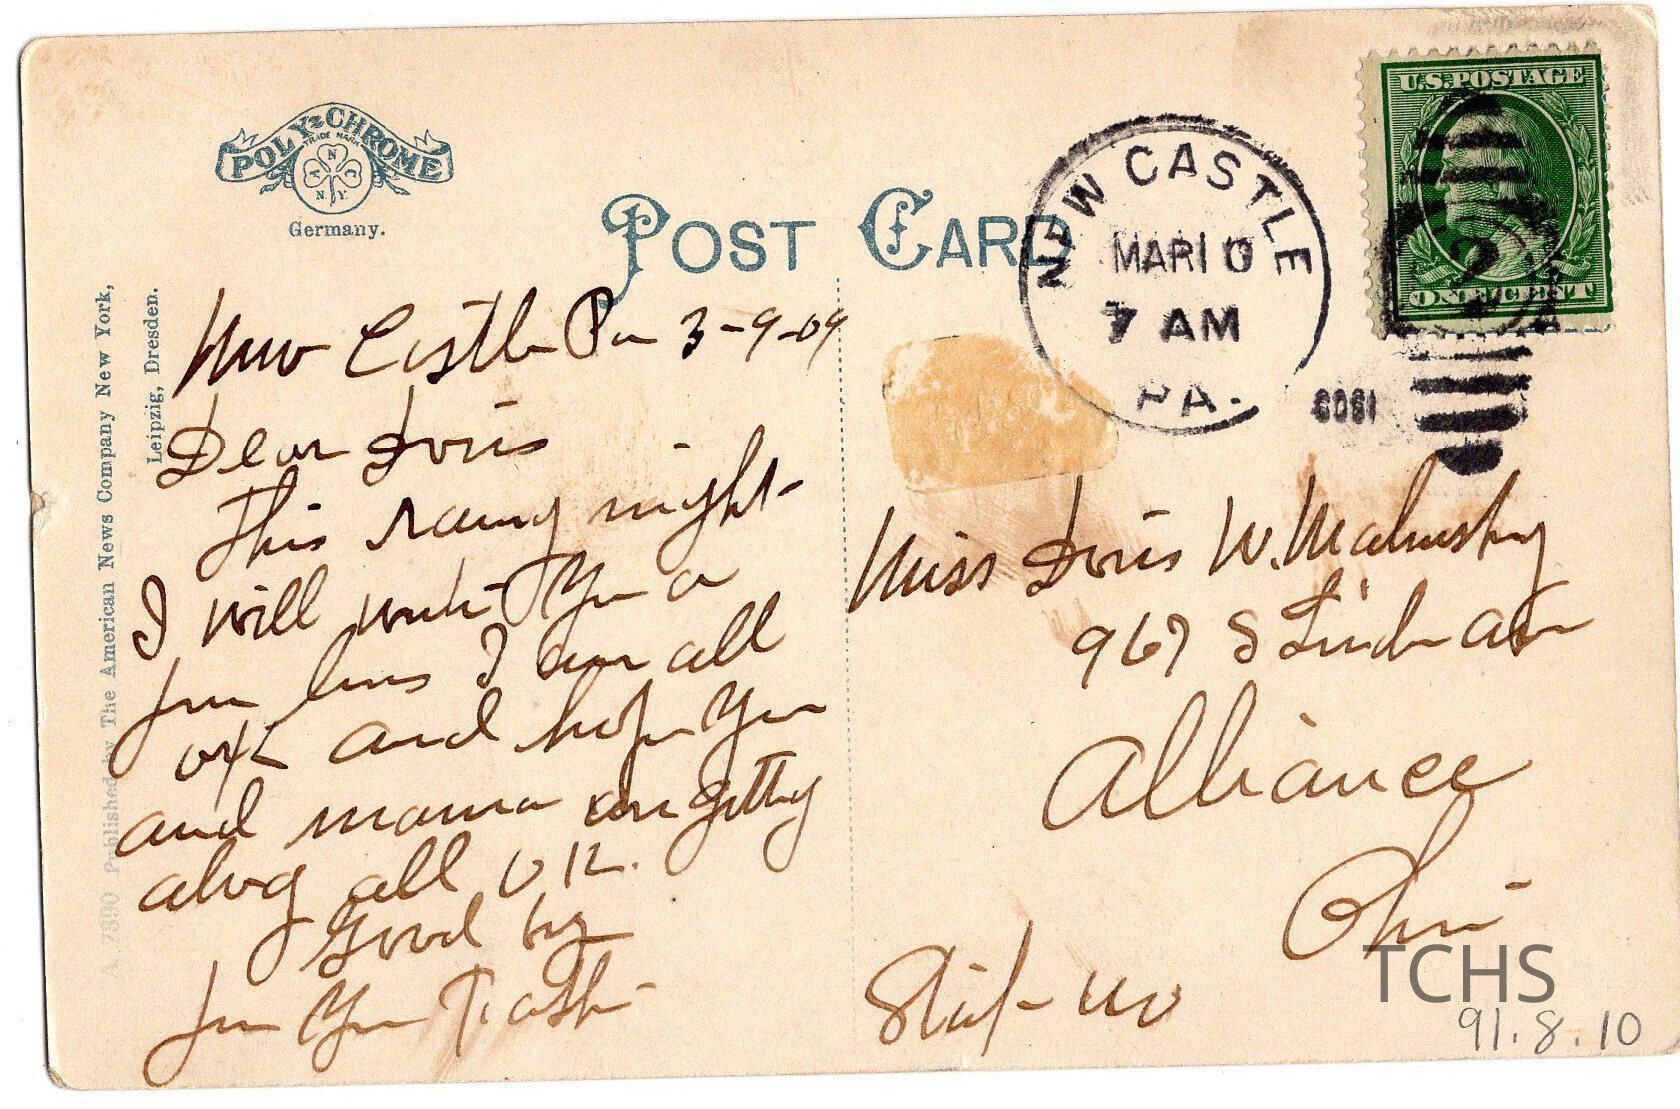 POLY-CHROME
TRADE MARK
A N C
N.Y.
Germany.
POST CARD
NEW CASTLE
MAR 10
7 AM
PA.
1909
U.S. POSTAGE
2
ONE CENT
A. 7890 Published by The American News Company New York,
Leipzig, Dresden.
New Castle Pa 3-9-09
Dear Doris
This rainy night
I will write you a
few lines I am all
ok and hope you
and mama are getting
along all OK.
Good by
from your
Miss Doris W.
967 S Linden Ave
Alliance
Ohio
TCHS
91.8.10